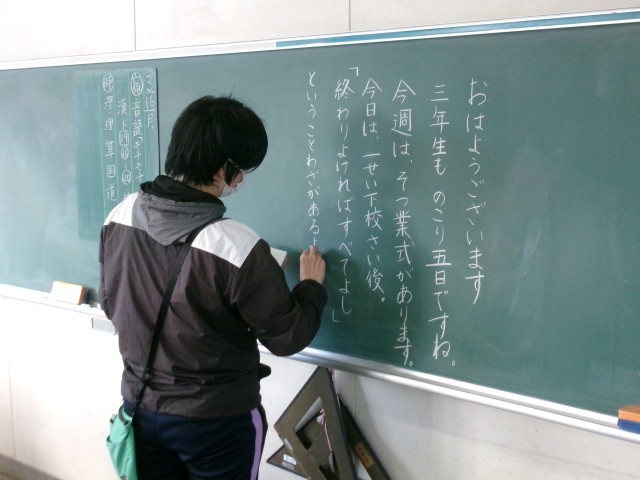 おはようございます
三年生も のこり五日ですね。
今週は、そつ業式があります。
今日は、一せい下校さい後。
「終わりよければすべてよし」
ということわざがある
3/16月
音読
漢ド
理 算 国 道